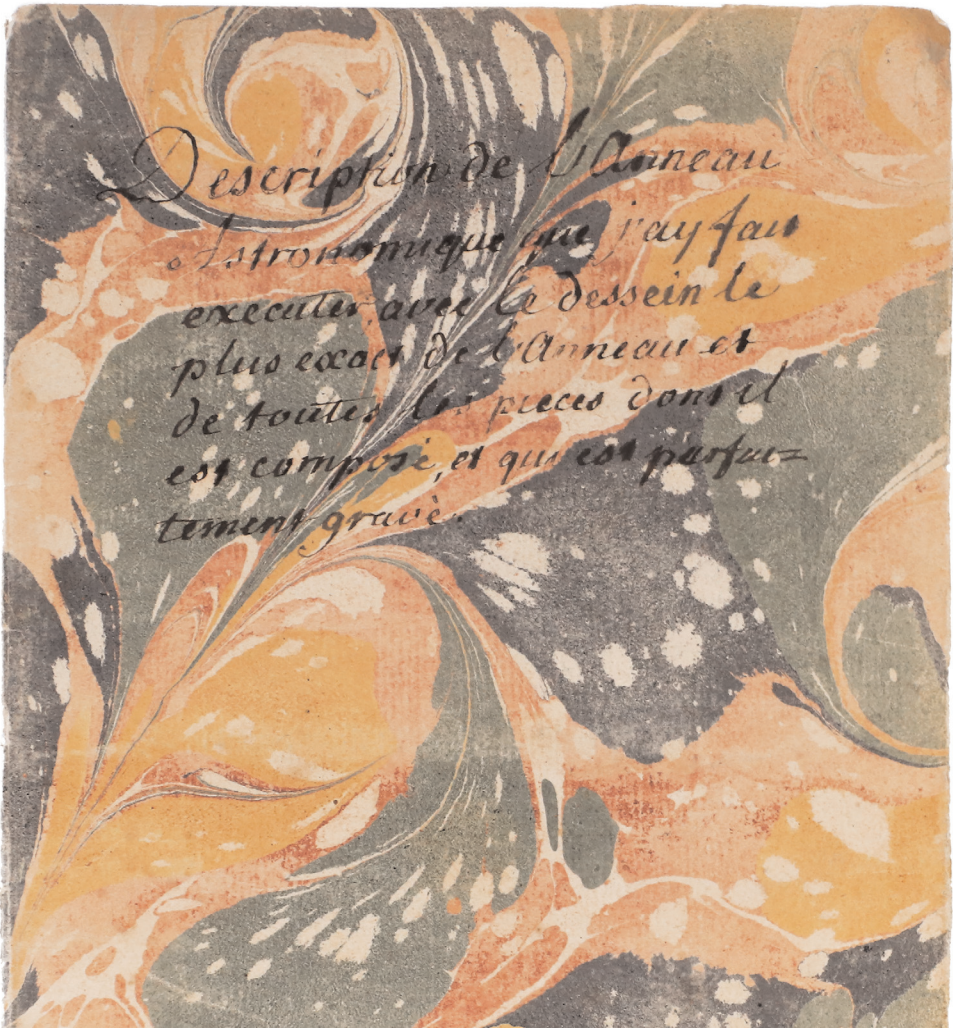 Description de l'Anneau
Astronomique que j'ay fait
executer, avec le dessein le
plus exact de l'Anneau et
de toutes les pieces dont il
est composé, et qui est parfai=
tement gravé.